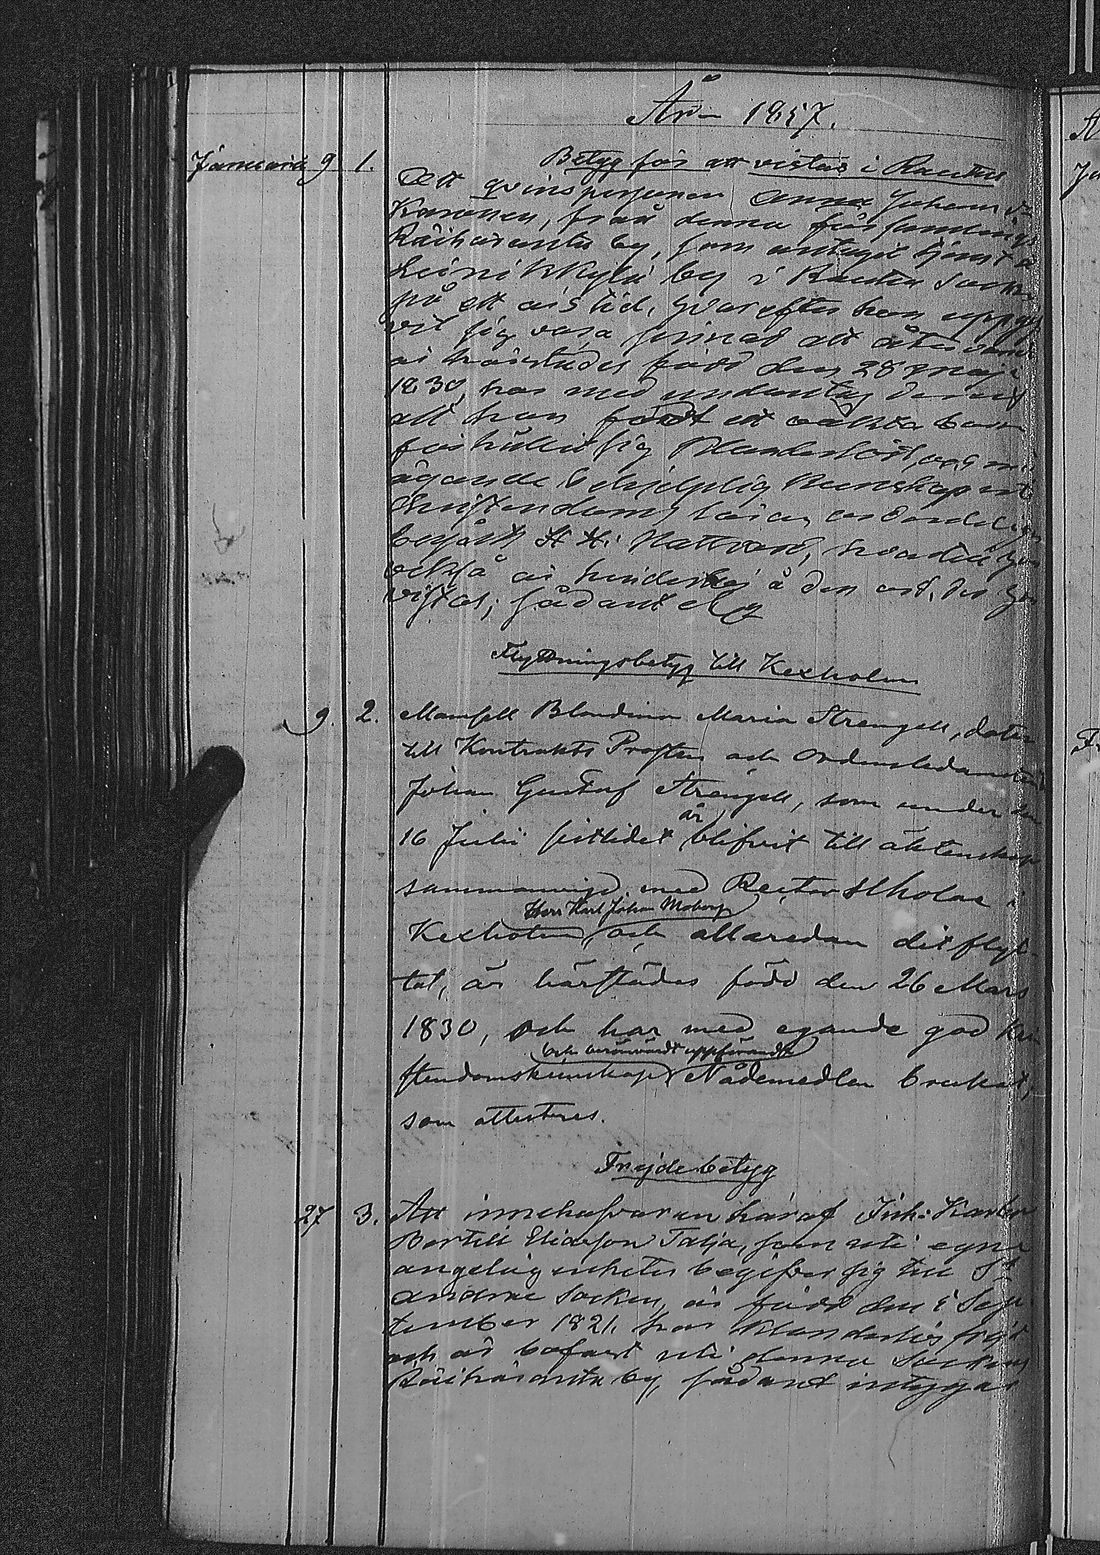 År 1857.
Januarii 9 1. Betyg för att vistas i Rautus
Att qvinspersonen Anna Johans dr
Karonen, från denna församlings
Räihäranta by, som antagit tjenst i
Leinikkylä by i Rautus Socken
på ett års tid, hvarefter hon uppgif
vit sig vara sinnad att återvända
är härstädes född den 28 Maji
1830, har med undantag deraf
att hon född ett oäkta barn
förhållit sig klanderlöst, och
ägande behjelplig kunskap i
Christendoms läran
begått H. H. Nattvard,
också är hinderslös å den ort, der hon
vistas; sådant
Flyttningsbetyg till Kexholm
9. 2. Mamsell Blondina Maria Strengell, dotter
till Kontrakts Prosten och Ordensledamoten
Johan Gustaf Strengell, som under den
16 Julii sistlidet år blifvit till äktenskap
sammanvigd med Rector Scholae i
Kexholm Herr Karl Johan Moberg och allaredan dit flyt
tat, är härstädes född den 26 Mars
1830, och har med egande god kri
stendomskunskap och berömvärdt uppförande Nådemedlen brukat,
som attesteras.
Frejdebetyg
27 3. Att innehafvaren häraf Inh:
Bertill Eliasson Talja, som uti egna
angelägenheter begifver sig till
andra Socken, är född den 1 Sep
tember 1821, har klanderlös frejd
och är bofast uti denna Sockens
Räihäranta by, sådant intygas